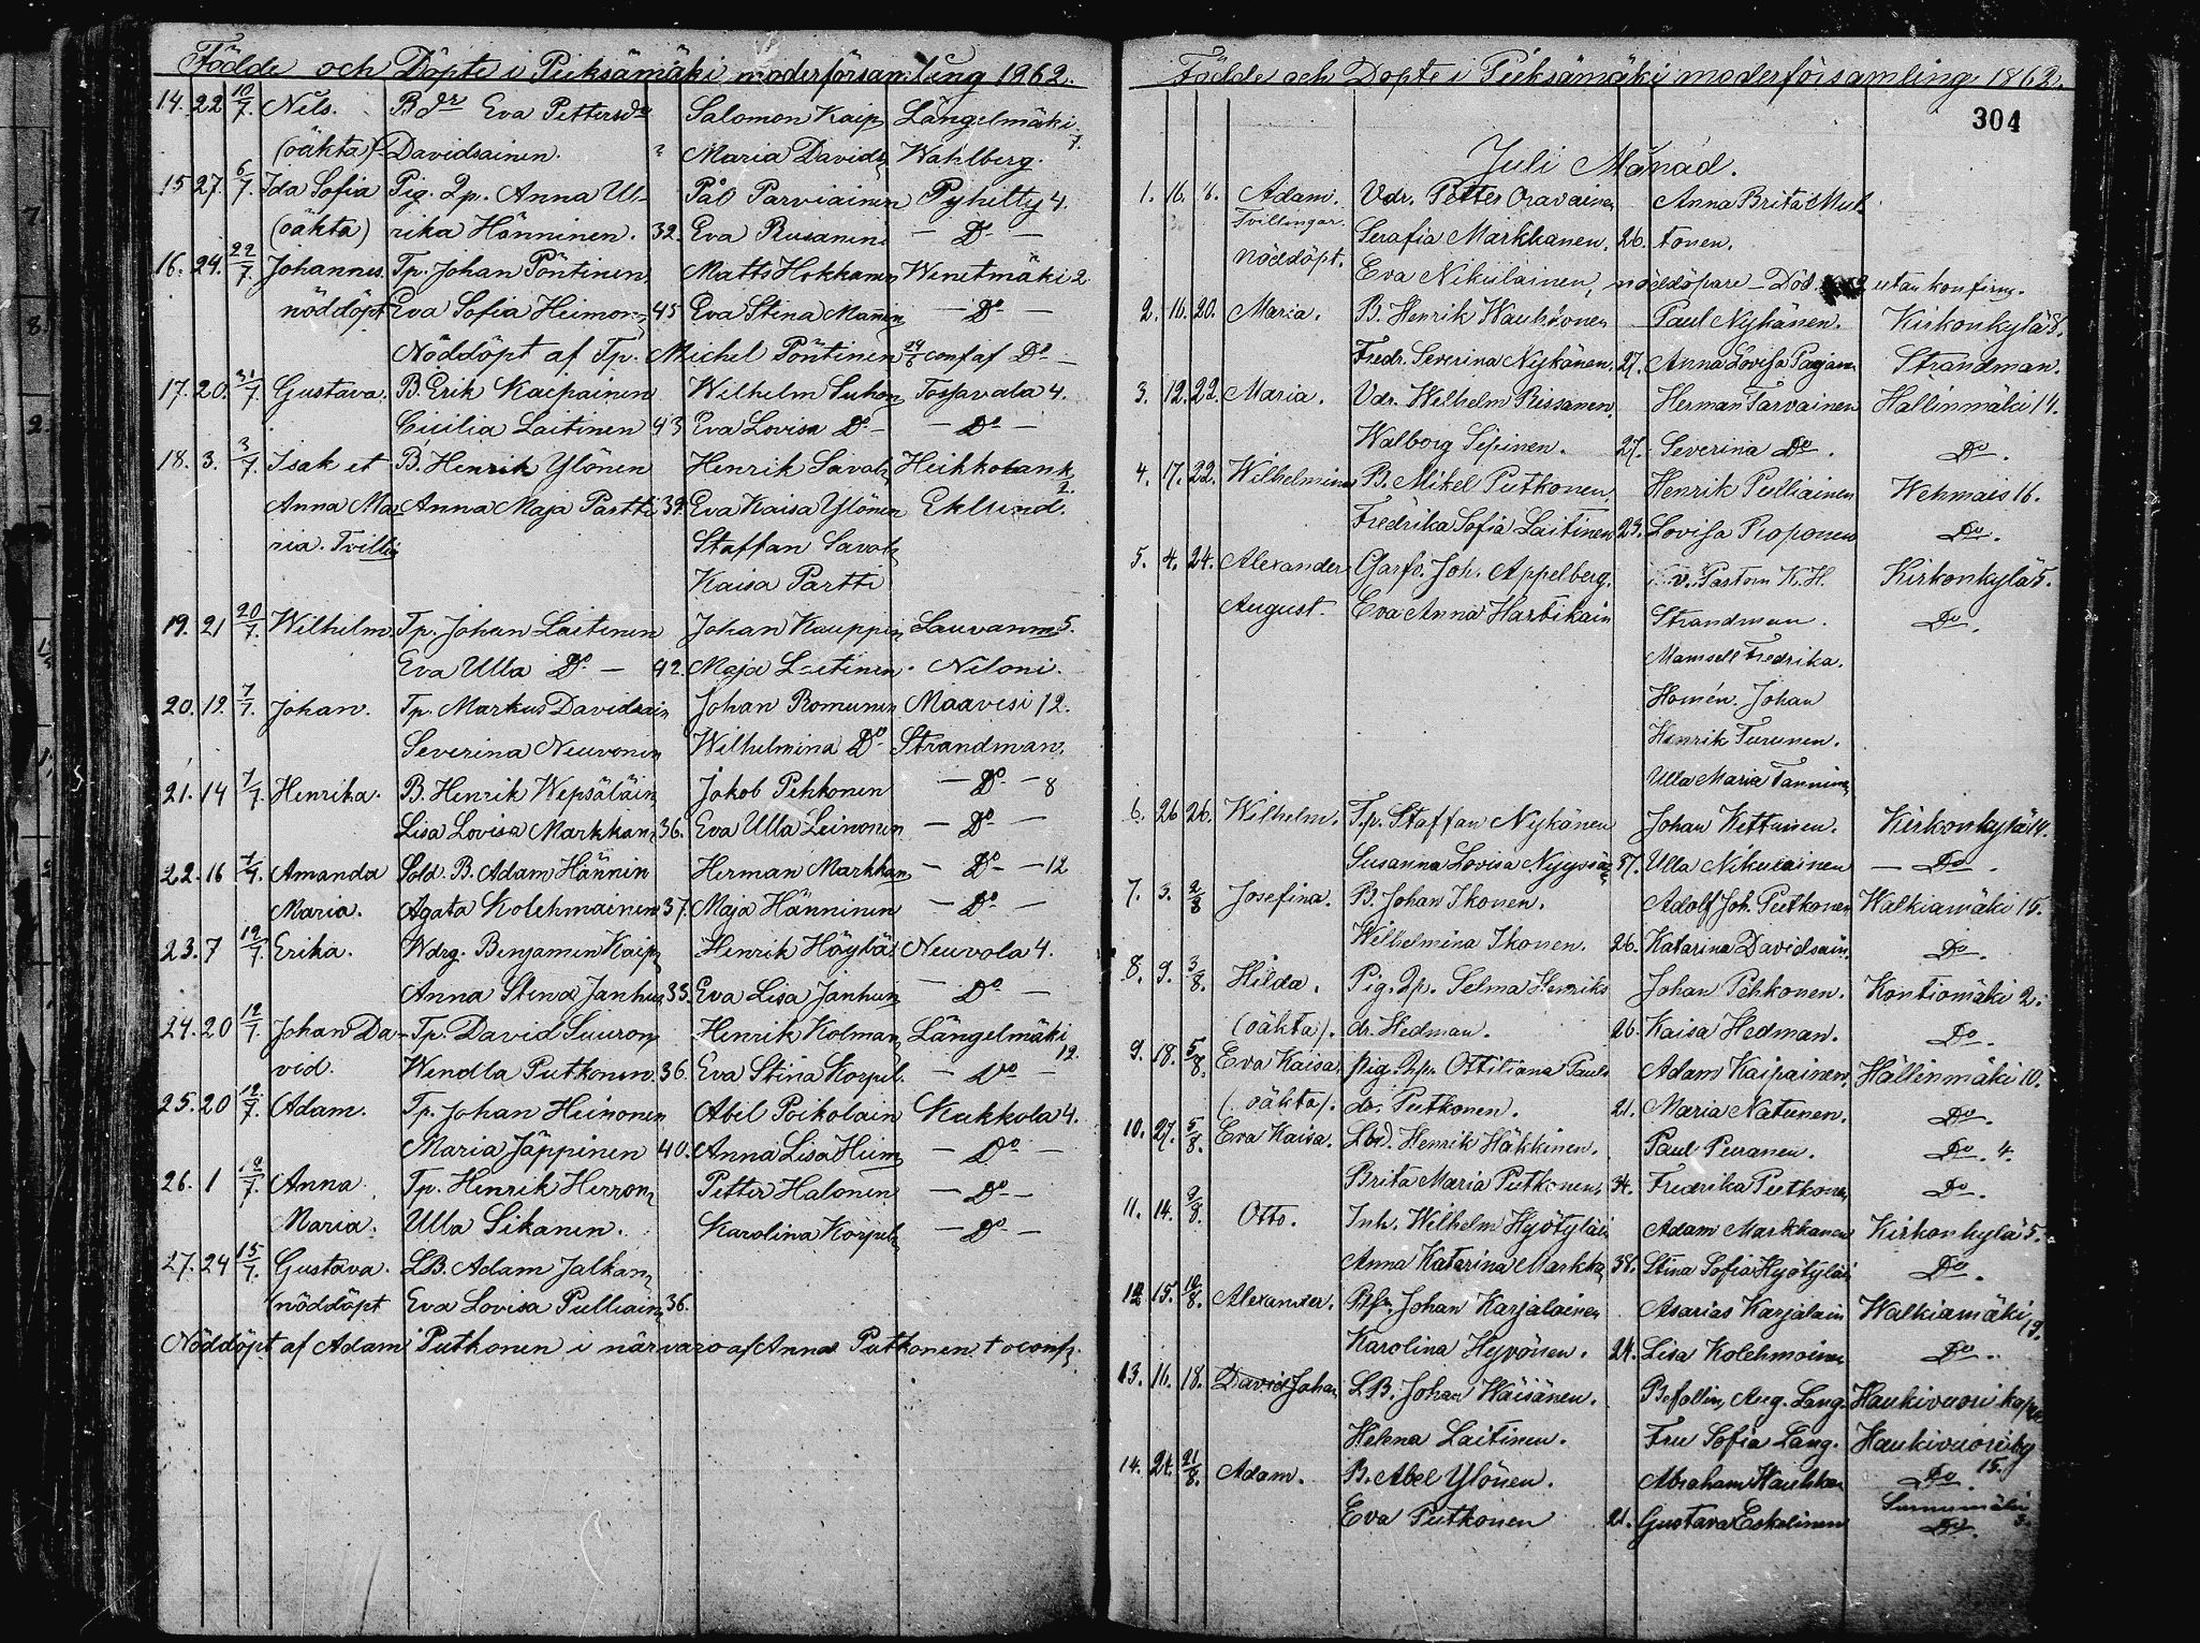 Födde och Döpte i Pieksämäki moderförsamling 1862.
14. 22 10/7. Nils. Bdr Eva Pettersdr Salomon Kaip Längelmäki
(oäkta) Davidsainen. Maria Davids Wahlberg. 7.
15 27. 6/7. Ida Sofia Pig. Lp. Anna Ul- Pål Parviainen Pyhitty 4.
(oäkta) rika Hänninen. 32. Eva Rusanin — Do —
16. 24. 22/7. Johannes. Tp. Johan Pöntinen Matts Hokkanen Wenetmäki 2
nöddöpt Eva Sofia Heimon 45 Eva Stina Manin — Do —
Nöddöpt af Tp. Michel Pöntinen conf af Do —
17. 20. /7. Gustava. B. Erik Kaipainen Wilhelm Suhon Tossavala 4.
Cicilia Laitinen 43 Eva Lovisa Do — — Do —
18. 3. 3/7. Isak et B. Henrik Ylönen Henrik Savol Heikkolank
2.
Anna Ma- Anna Maja Partti 39. Eva Kaisa Ylönen Eklund.
ria. Tvillin Staffan Savol
Kaisa Partti
19. 21 20/7. Wilhelm. Tp. Johan Laitinen Johan Kauppin Lauvanm 5.
Eva Ulla Do — 42. Maja Laitinen. Niloni.
20. 12. 7/7. Johan. Tp. Markus Davidsain Johan Romunen Maavesi 12.
Severina Neuvonin Wilhelmina Do Strandman.
21. 14 7/7. Henrika. B. Henrik Wepsäläin Jakob Pehkonen — Do — 8
Lisa Lovisa Markkan 36. Eva Ulla Leinonen — Do —
22. 16 7/7. Amanda Sold. B. Adam Hännin Herman Markkan — Do — 12
Maria. Agata Kolehmainen 37. Maja Hänninen — Do —
23. 7 12/7. Erika. Wdrg. Benjamin Kaip Henrik Höylä Neuvola 4.
Anna Stina Janhun 33. Eva Lisa Janhun — Do —
24. 20 12/7. Johan Da- Tp. David Suuron Henrik Kolman Längelmäki
12.
vid. Wendla Putkonen. 36. Eva Stina Korpil. — Do —
25. 20 12/7. Adam. Tp. Johan Heinonen Abel Poikolain Kukkola 4.
Maria Jäppinen 40. Anna Lisa Heim — Do —
26. 1 12/7. Anna Tp. Henrik Herron Petter Halonen — Do —
Maria. Ulla Sikanen. Karolina Korpel — Do —
27. 24 15/7. Gustava. LB. Adam Jalkan
(nöddöpt Eva Lovisa Pulliain 36.
Nöddöpt af Adam Putkonen i närvaro af Anna Putkonen †
Födde och Döpte i Pieksämäki moderförsamling 1862.
304
Juli Månad.
1. 16. 6. Adam. Vdr. Petter Oravainen Anna Brita Muk
Tvillingar. Serafia Markkanen. 26. tonen.
Nöddöpt. Eva Nikulainen, nöddöpare — Död utan konfirm.
2. 16. 20. Maria. B. Henrik Hauhkonen Paul Nykänen. Kirkonkylä 8.
Fredr. Severina Nykänen. 27. Anna Lovisa Pagan Strandman.
3. 12. 22. Maria. Vdr. Wilhelm Rissanen. Herman Tarvainen Hällinmäki 14.
Walborg Sepinen. 27. Severina Do. Do.
4. 17. 22. Wilhelmina B. Mikel Putkonen. Henrik Pulliainen Wehmais 16.
Fredrika Sofia Laitinen 23. Lovisa Roponen Do.
5. 4. 24. Alexander Garfv. Joh. Appelberg. v. Pastorn K. H. Kirkonkylä 5.
August. Eva Anna Hartikain Strandman. Do.
Mamsell Fredrika.
Homén. Johan
Henrik Turunen.
Ulla Maria Tannine
6. 26 26. Wilhelm. T.p. Staffan Nykänen Johan Kettunen. Kirkonkylä 14.
Susanna Lovisa Nyyssön 37. Ulla Nikulainen — Do.
7. 3. 2/8 Josefina. B. Johan Ikonen. Adolf Joh. Putkonen Walkiamäki 15.
Wilhelmina Ikonen. 26. Katarina Davidsain. Do.
8. 9. 3/8. Hilda. Pig. Lp. Selma Henriks Johan Pehkonen. Kontiomäki 2.
(oäkta). dr. Hedman. 26. Kaisa Hedman. Do.
9. 18. 5/8. Eva Kaisa. pig. Ottiliana Pauls Adam Kaipainen. Hällinmäki 10.
(oäkta). dr. Putkonen. 21. Maria Natunen. Do.
10. 27. 5/8. Eva Kaisa. Lbd. Henrik Häkkinen. Paul Peuranen. Do. 4.
Brita Maria Putkonen. 34. Fredrika Putkonen Do.
11. 14. 9/8. Otto. Inh. Wilhelm Hyötyläi Adam Markkanen Kirkonkylä 5.
Anna Katarina Markka 38. Stina Sofia Hyötyläi Do.
12 15. 10/8. Alexander. Johan Karjalainen Asarias Karjalain Walkiamäki 9.
Karolina Hyvönen. 24. Lisa Kolehmainen Do.
13. 16. 18. David Johan LB. Johan Häisänen. Befallm. Aug. Lang. Haukivuori kapell
Helena Laitinen. Fru Sofia Lang. Haukivuori by
15.
14. 24. 21/8. Adam. B. Abel Ylönen. Abraham Hauhkon Do.
Eva Putkonen 21. Gustava Eskelinen Do. 3.